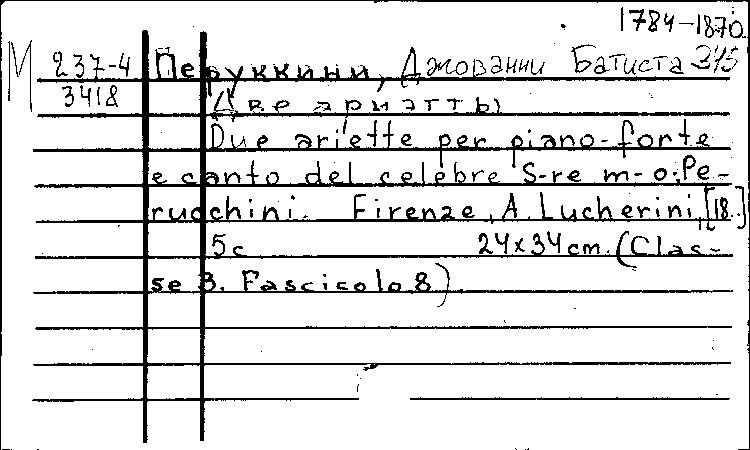 1784-1870
М 237-4 Перуккини, Джованни Батиста 315
3418 Две ариэтты
Due ariette per piano-forte
e canto del celebre S-re m-o: Pe-
rucchini. Firenze, A. Lucherini, [18..]
5c 24x34cm. (Clas-
se 3. Fascicolo 8)